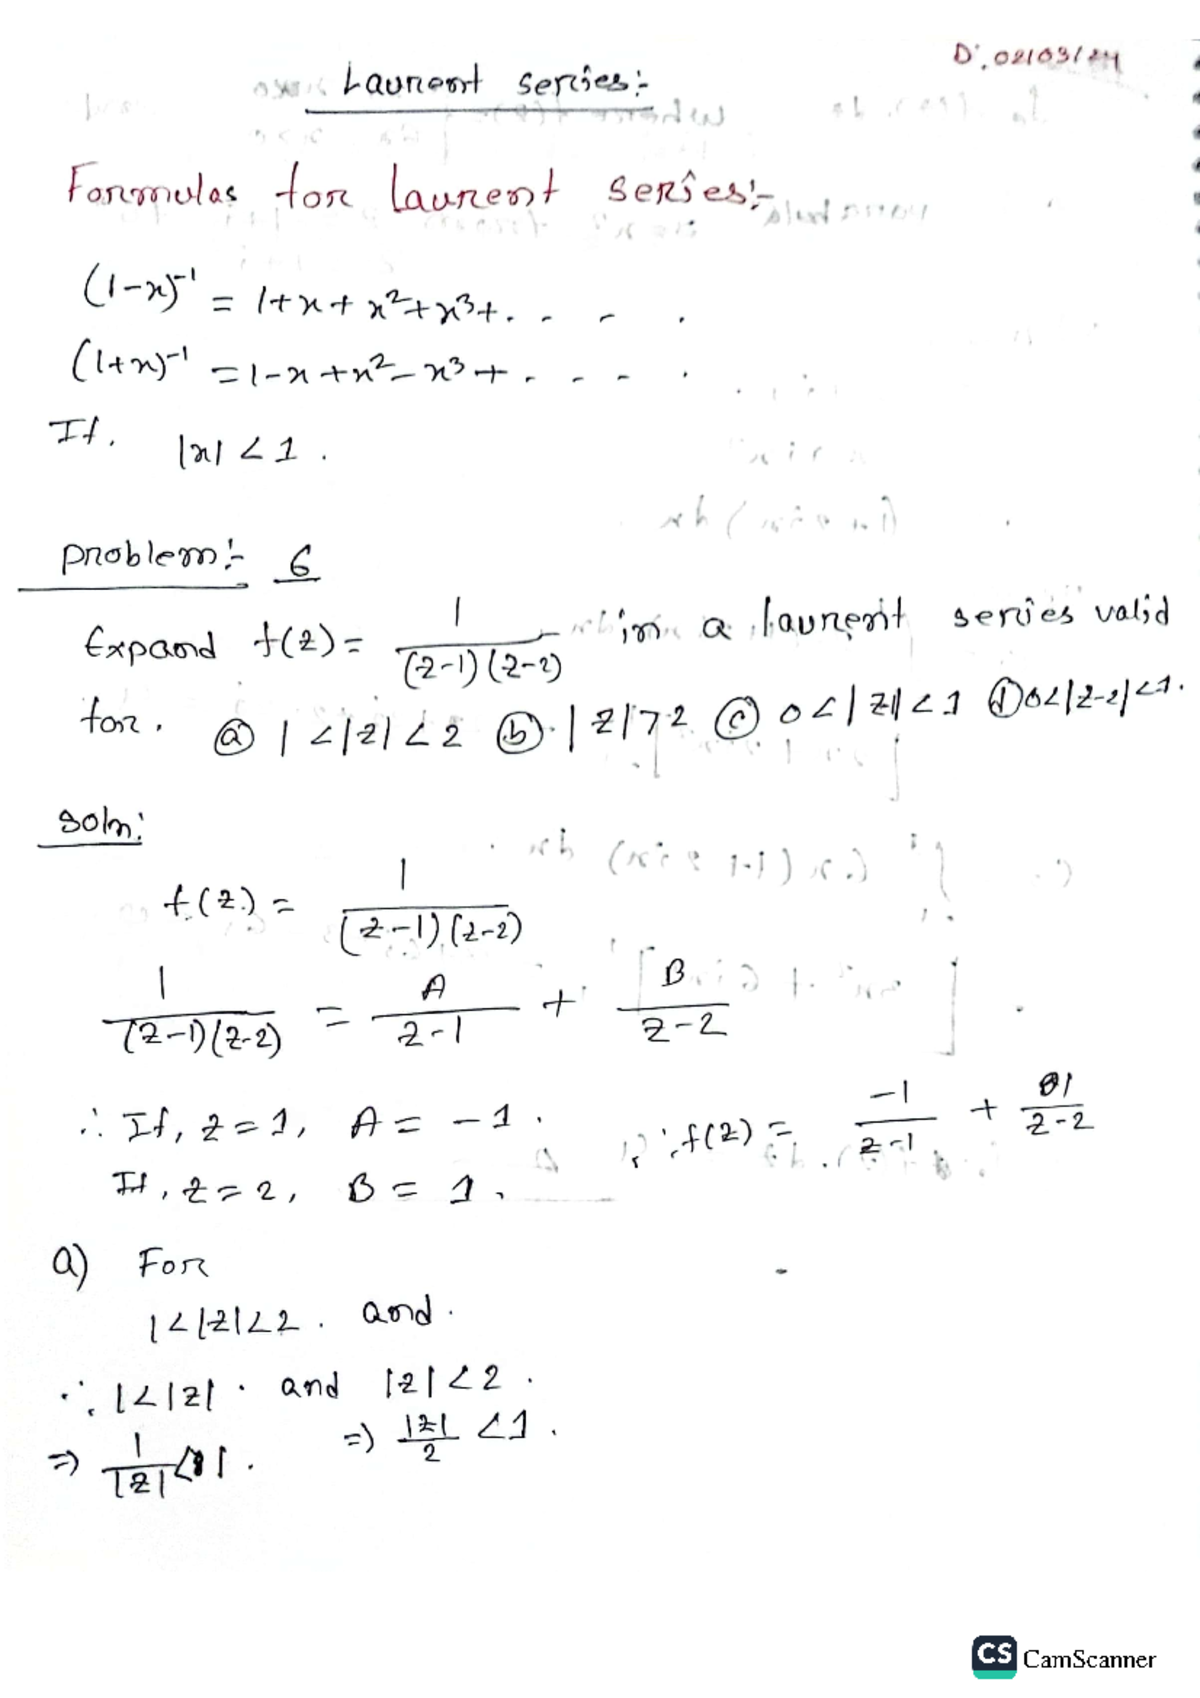 D: 02/03/24
Laurent series:-
Formulas for Laurent series:-
(1-x)⁻¹ = 1+x+x²+x³+. . . .
(1+x)⁻¹ = 1-x+x²-x³+. . . . .
If, |x| < 1 .
Problem:- 6
Expand f(z) = 1/(z-1)(z-2) in a laurent series valid
for. ⓐ 1<|z|<2 ⓑ |z|>2 ⓒ 0<|z|<1 ⓓ 0<|z-2|<1.
Soln:
f(z) = 1/(z-1)(z-2)
1/(z-1)(z-2) = A/z-1 + B/z-2
∴ If, z=1, A = -1. ∴ f(z) = -1/z-1 + 1/z-2
If, z=2, B = 1.
a) For
1<|z|<2. and.
∴ 1<|z|. and |z|<2.
⇒ 1/|z| < 1. ⇒ |z|/2 < 1.
CS CamScanner